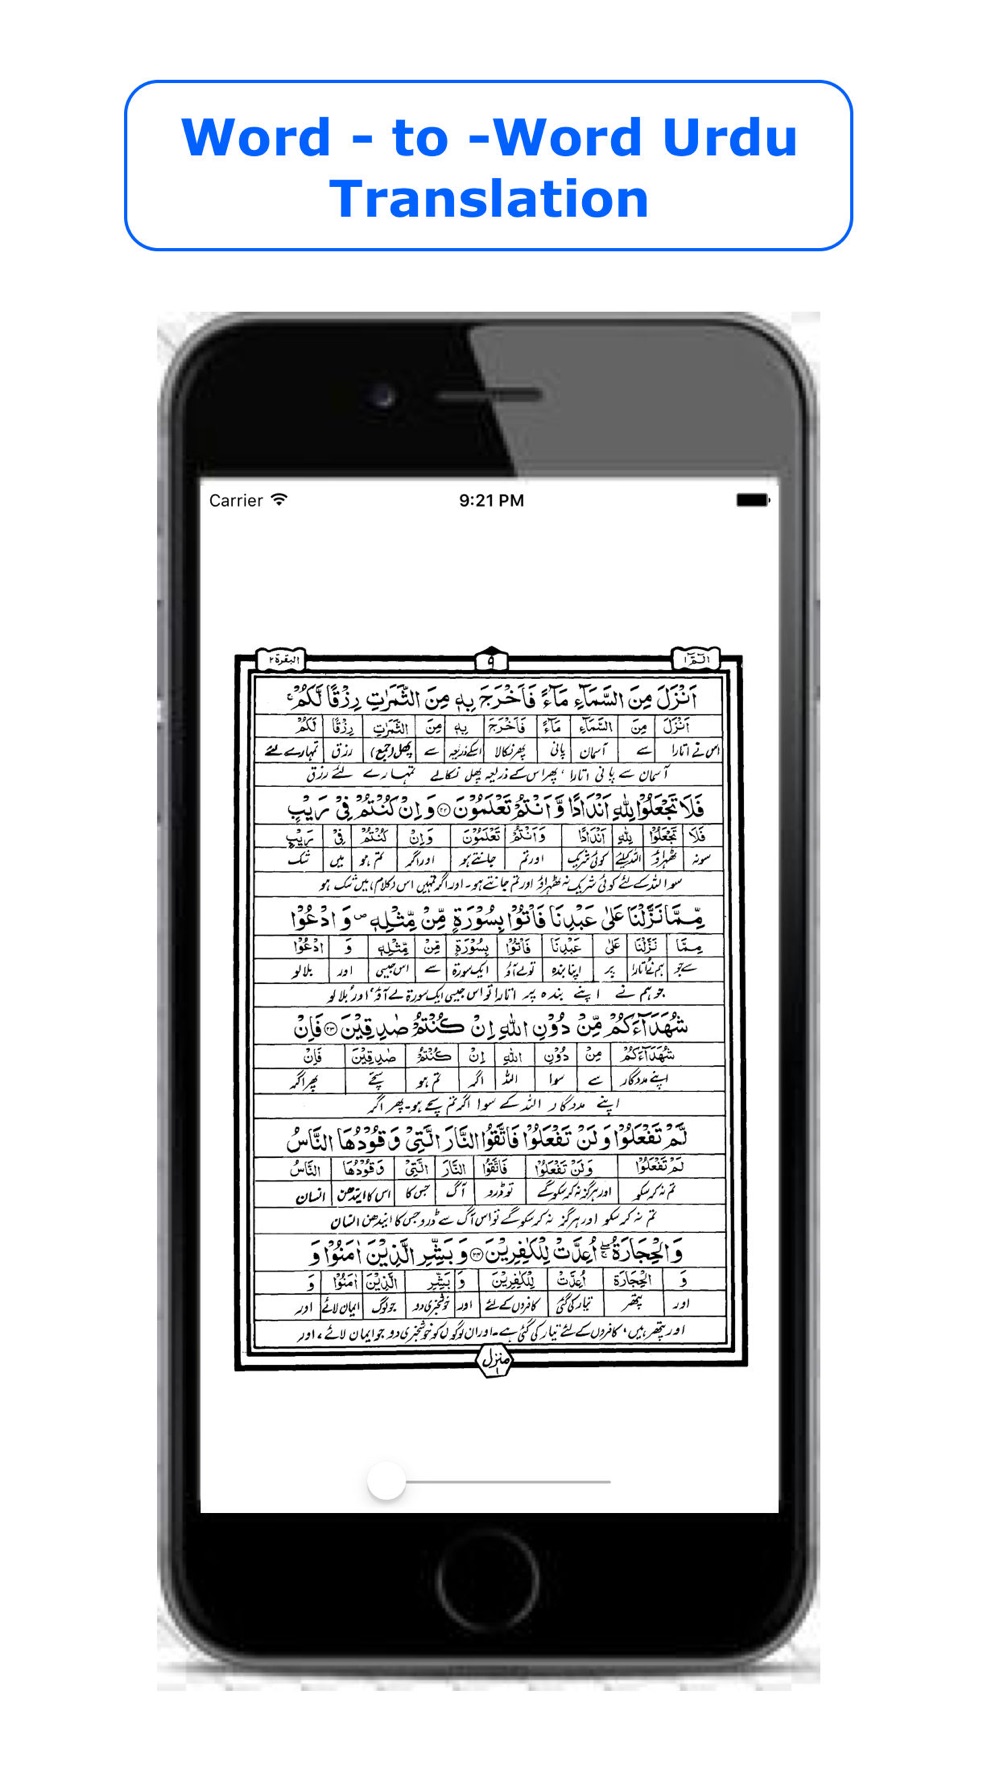 Word - to -Word Urdu
Translation
Carrier
9:21 PM
الٓمّٓ ١
۹
البقرة ٢
اَنْزَلَ مِنَ السَّمَآءِ مَآءً فَاَخْرَجَ بِهٖ مِنَ الثَّمَرٰتِ رِزْقًا لَّكُمْ ۚ
اَنْزَلَ مِنَ السَّمَآءِ مَآءً فَاَخْرَجَ بِهٖ مِنَ الثَّمَرٰتِ رِزْقًا لَكُمْ
اس نے اتارا سے آسمان پانی پھر نکالا اسکے ذریعہ سے پھل (جمع) رزق تمہارے لئے
آسمان سے پانی اتارا، پھر اس کے ذریعہ پھل نکالے تمہارے لئے رزق
فَلَا تَجْعَلُوْا لِلّٰهِ اَنْدَادًا وَّاَنْتُمْ تَعْلَمُوْنَ ۝٢٢ وَاِنْ كُنْتُمْ فِيْ رَيْبٍ
فَلَا تَجْعَلُوْا لِلّٰهِ اَنْدَادًا وَاَنْتُمْ تَعْلَمُوْنَ وَاِنْ كُنْتُمْ فِيْ رَيْبٍ
سو نہ ٹھہراؤ اللہ کیلئے کوئی شریک اور تم جانتے ہو اور اگر تم ہو میں شک
سو اللہ کے لئے کوئی شریک نہ ٹھہراؤ اور تم جانتے ہو۔ اور اگر تمہیں اس (کلام) میں شک ہو
مِّمَّا نَزَّلْنَا عَلٰى عَبْدِنَا فَاْتُوْا بِسُوْرَةٍ مِّنْ مِّثْلِهٖ ۠ وَادْعُوْا
مِمَّا نَزَّلْنَا عَلٰى عَبْدِنَا فَاْتُوْا بِسُوْرَةٍ مِّنْ مِّثْلِهٖ وَ ادْعُوْا
سے جو ہم نے اتارا پر اپنا بندہ تو لے آؤ ایک سورۃ سے اس جیسی اور بلا لو
جو ہم نے اپنے بندہ پر اتارا تو اس جیسی ایک سورۃ لے آؤ، اور بُلا لو
شُهَدَآءَكُمْ مِّنْ دُوْنِ اللّٰهِ اِنْ كُنْتُمْ صٰدِقِيْنَ ۝٢٣ فَاِنْ
شُهَدَآءَكُمْ مِنْ دُوْنِ اللّٰهِ اِنْ كُنْتُمْ صٰدِقِيْنَ فَاِنْ
اپنے مددگار سے سوا اللہ اگر تم ہو سچے پھر اگر
اپنے مددگار اللہ کے سوا اگر تم سچے ہو۔ پھر اگر
لَّمْ تَفْعَلُوْا وَلَنْ تَفْعَلُوْا فَاتَّقُوا النَّارَ الَّتِيْ وَقُوْدُهَا النَّاسُ
لَمْ تَفْعَلُوْا وَلَنْ تَفْعَلُوْا فَاتَّقُوا النَّارَ الَّتِيْ وَقُوْدُهَا النَّاسُ
تم نہ کر سکو اور ہرگز نہ کر سکو گے تو ڈرو آگ جس کا اس کا ایندھن انسان
تم نہ کر سکو اور ہرگز نہ کر سکو گے تو اس آگ سے ڈرو جس کا ایندھن انسان
وَالْحِجَارَةُ ۖ اُعِدَّتْ لِلْكٰفِرِيْنَ ۝٢٤ وَبَشِّرِ الَّذِيْنَ اٰمَنُوْا وَ
وَ الْحِجَارَةُ اُعِدَّتْ لِلْكٰفِرِيْنَ وَ بَشِّرِ الَّذِيْنَ اٰمَنُوْا وَ
اور پتھر تیار کی گئی کافروں کے لئے اور خوشخبری دو جو لوگ ایمان لائے اور
اور پتھر ہیں، کافروں کے لئے تیار کی گئی ہے۔ اور ان لوگوں کو خوشخبری دو جو ایمان لائے، اور
منزل ١